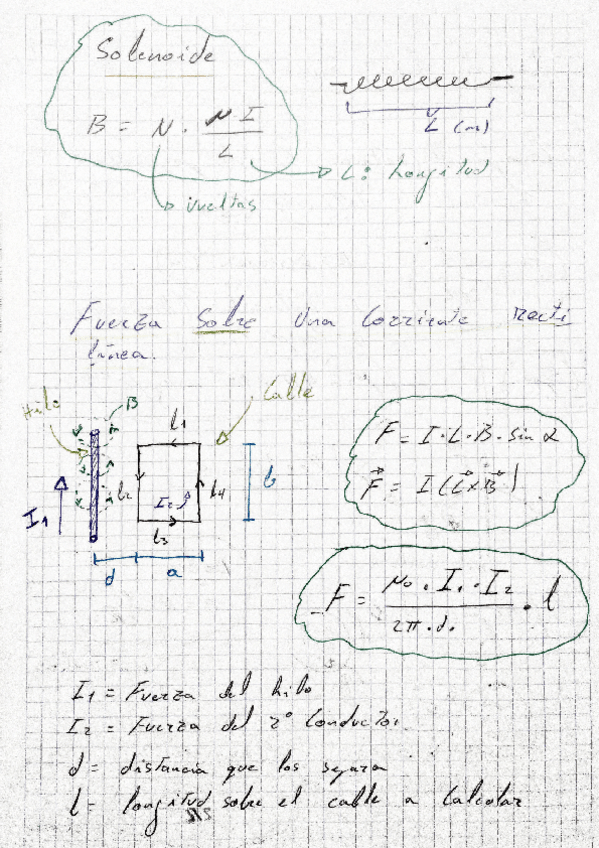 Solenoide
B = N · μ I / L
L (m)
L: Longitud
vueltas
Fuerza Sobre Una Corriente Recti
línea.
Hilo
B
Cable
l1
l2
l4
I2
l3
I1
b
d
a
F = I·L·B·sin α
F⃗ = I(L⃗×B⃗)
F = μ0 · I1 · I2 / 2π·d · l
I1 = Fuerza del hilo
I2 = Fuerza del 2º Conductor.
d = distancia que los separa
l = longitud sobre el cable a Calcular